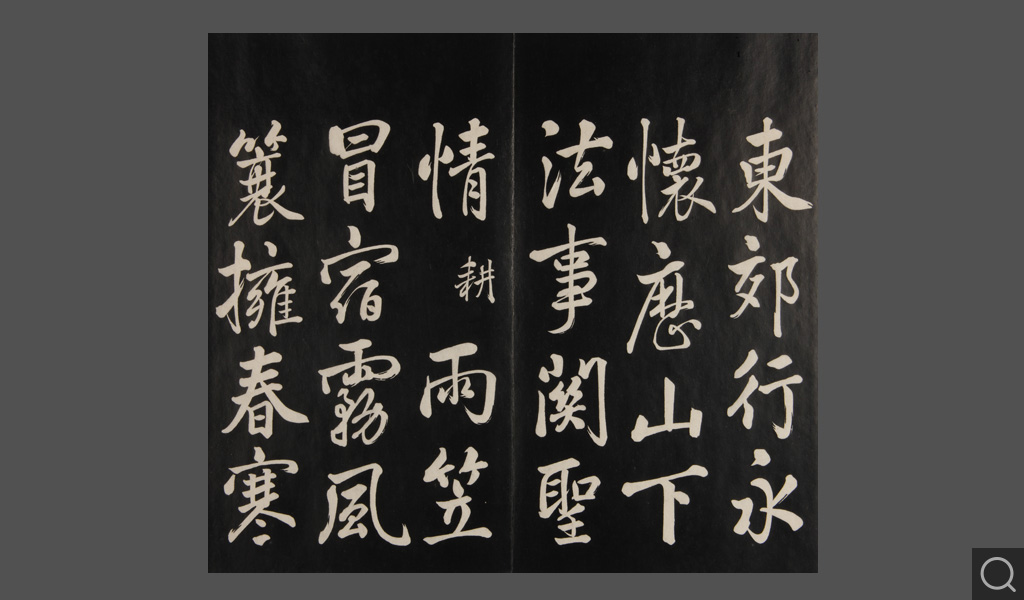 東郊行永
懷歷山下
法事關聖
情 耕 雨笠
冒宿霧風
簑擁春寒